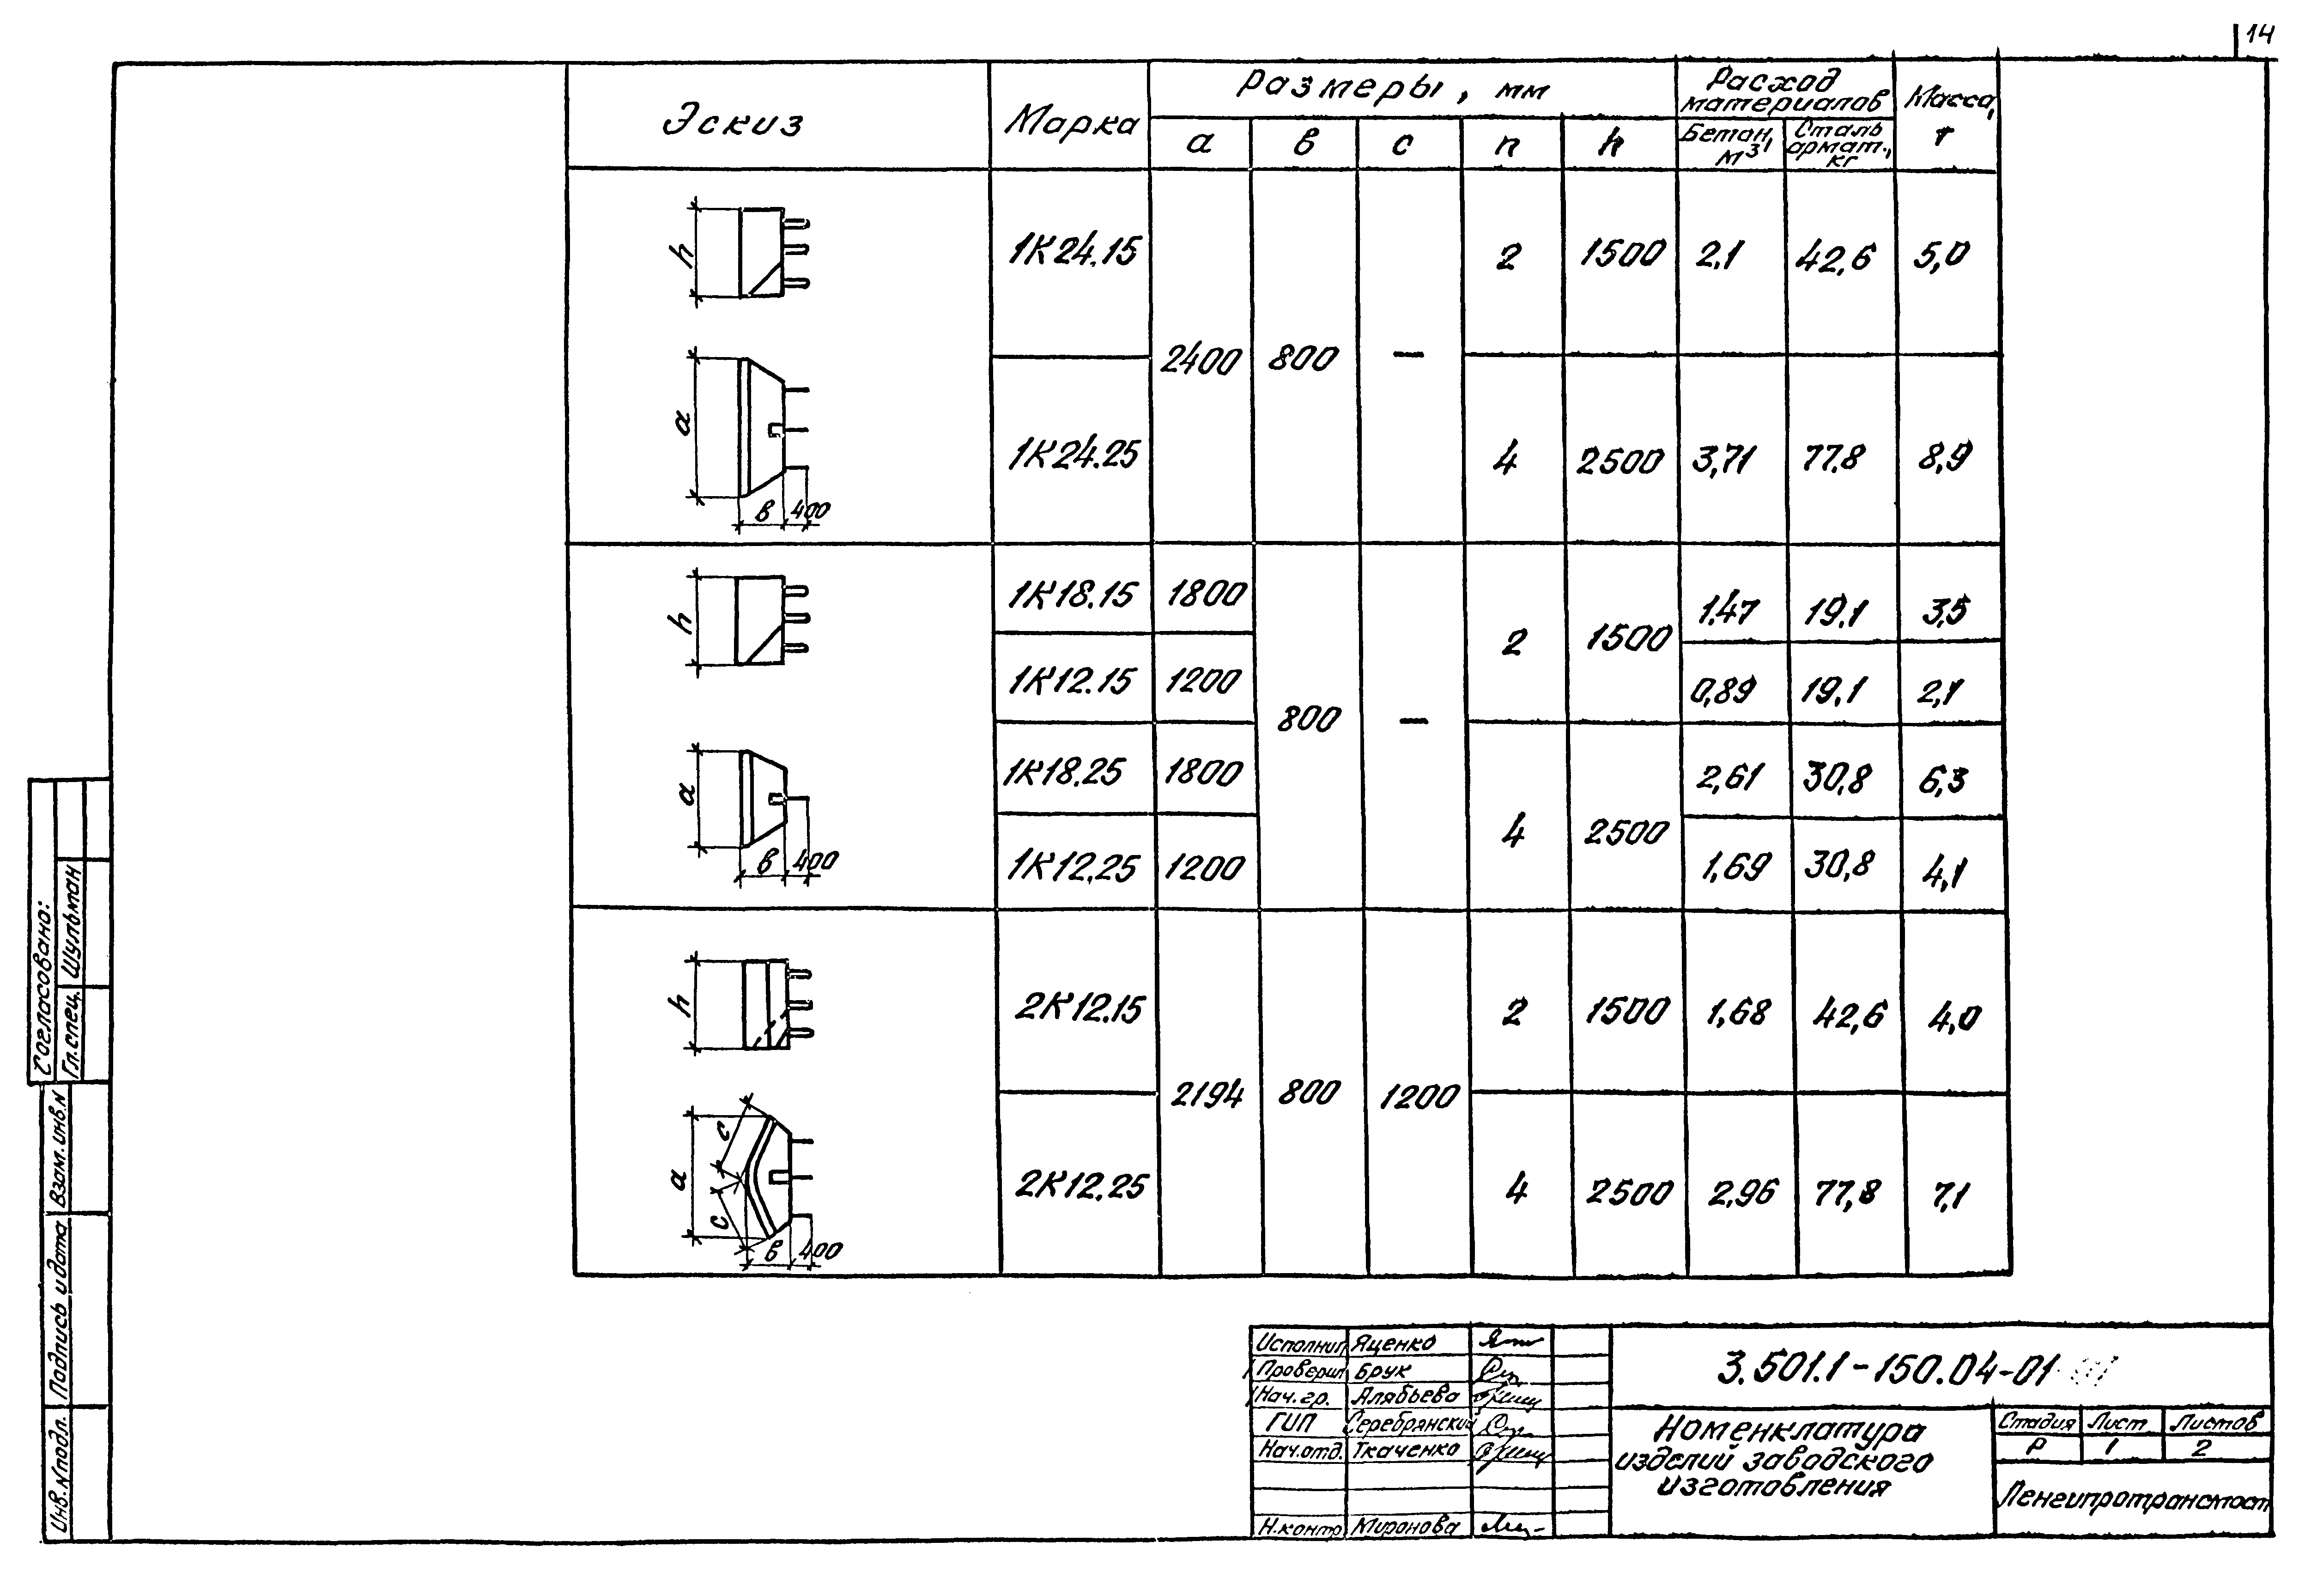 14
Эскиз
Марка
Размеры, мм
Расход материалов
Масса, т
а в с n h
Бетон, м³
Сталь армат., кг
h
1К24.15 2 1500 2,1 42,6 5,0
а
2400 800 —
1К24.25 4 2500 3,71 77,8 8,9
в 400
h
1К18.15 1800 1,47 19,1 3,5
2 1500
1К12.15 1200 0,89 19,1 2,1
800 —
а
1К18.25 1800 2,61 30,8 6,3
4 2500
1К12.25 1200 1,69 30,8 4,1
в 400
h
2К12.15 2 1500 1,68 42,6 4,0
2194 800 1200
а
с
с
2К12.25 4 2500 2,96 77,8 7,1
в 400
Согласовано:
Гл.спец. Шульман
Взам.инв.N
Подпись и дата
Инв.N подл.
Исполнил Яценко
Проверил Брук
Нач.гр. Алябьева
ГИП Серебрянский
Нач.отд. Ткаченко
Н.контр Миронова
3.501.1-150.04-01
Номенклатура
изделий заводского
изготовления
Стадия Лист Листов
Р 1 2
Ленгипротрансмост